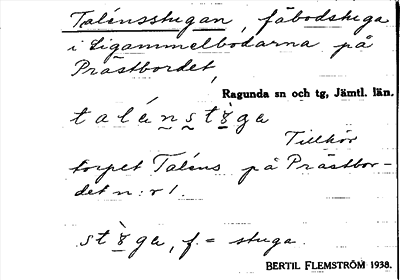 Talénsstugan, fäbodstuga
i Ligammelbodarna på
Prästbordet,
Ragunda sn och tg, Jämtl. län.
talénstɣ̀ga
Tillhör
torpet Taléns på Prästbor-
det n:r 1.
stɣ̀ga, f. = stuga.
BERTIL FLEMSTRÖM 1938.